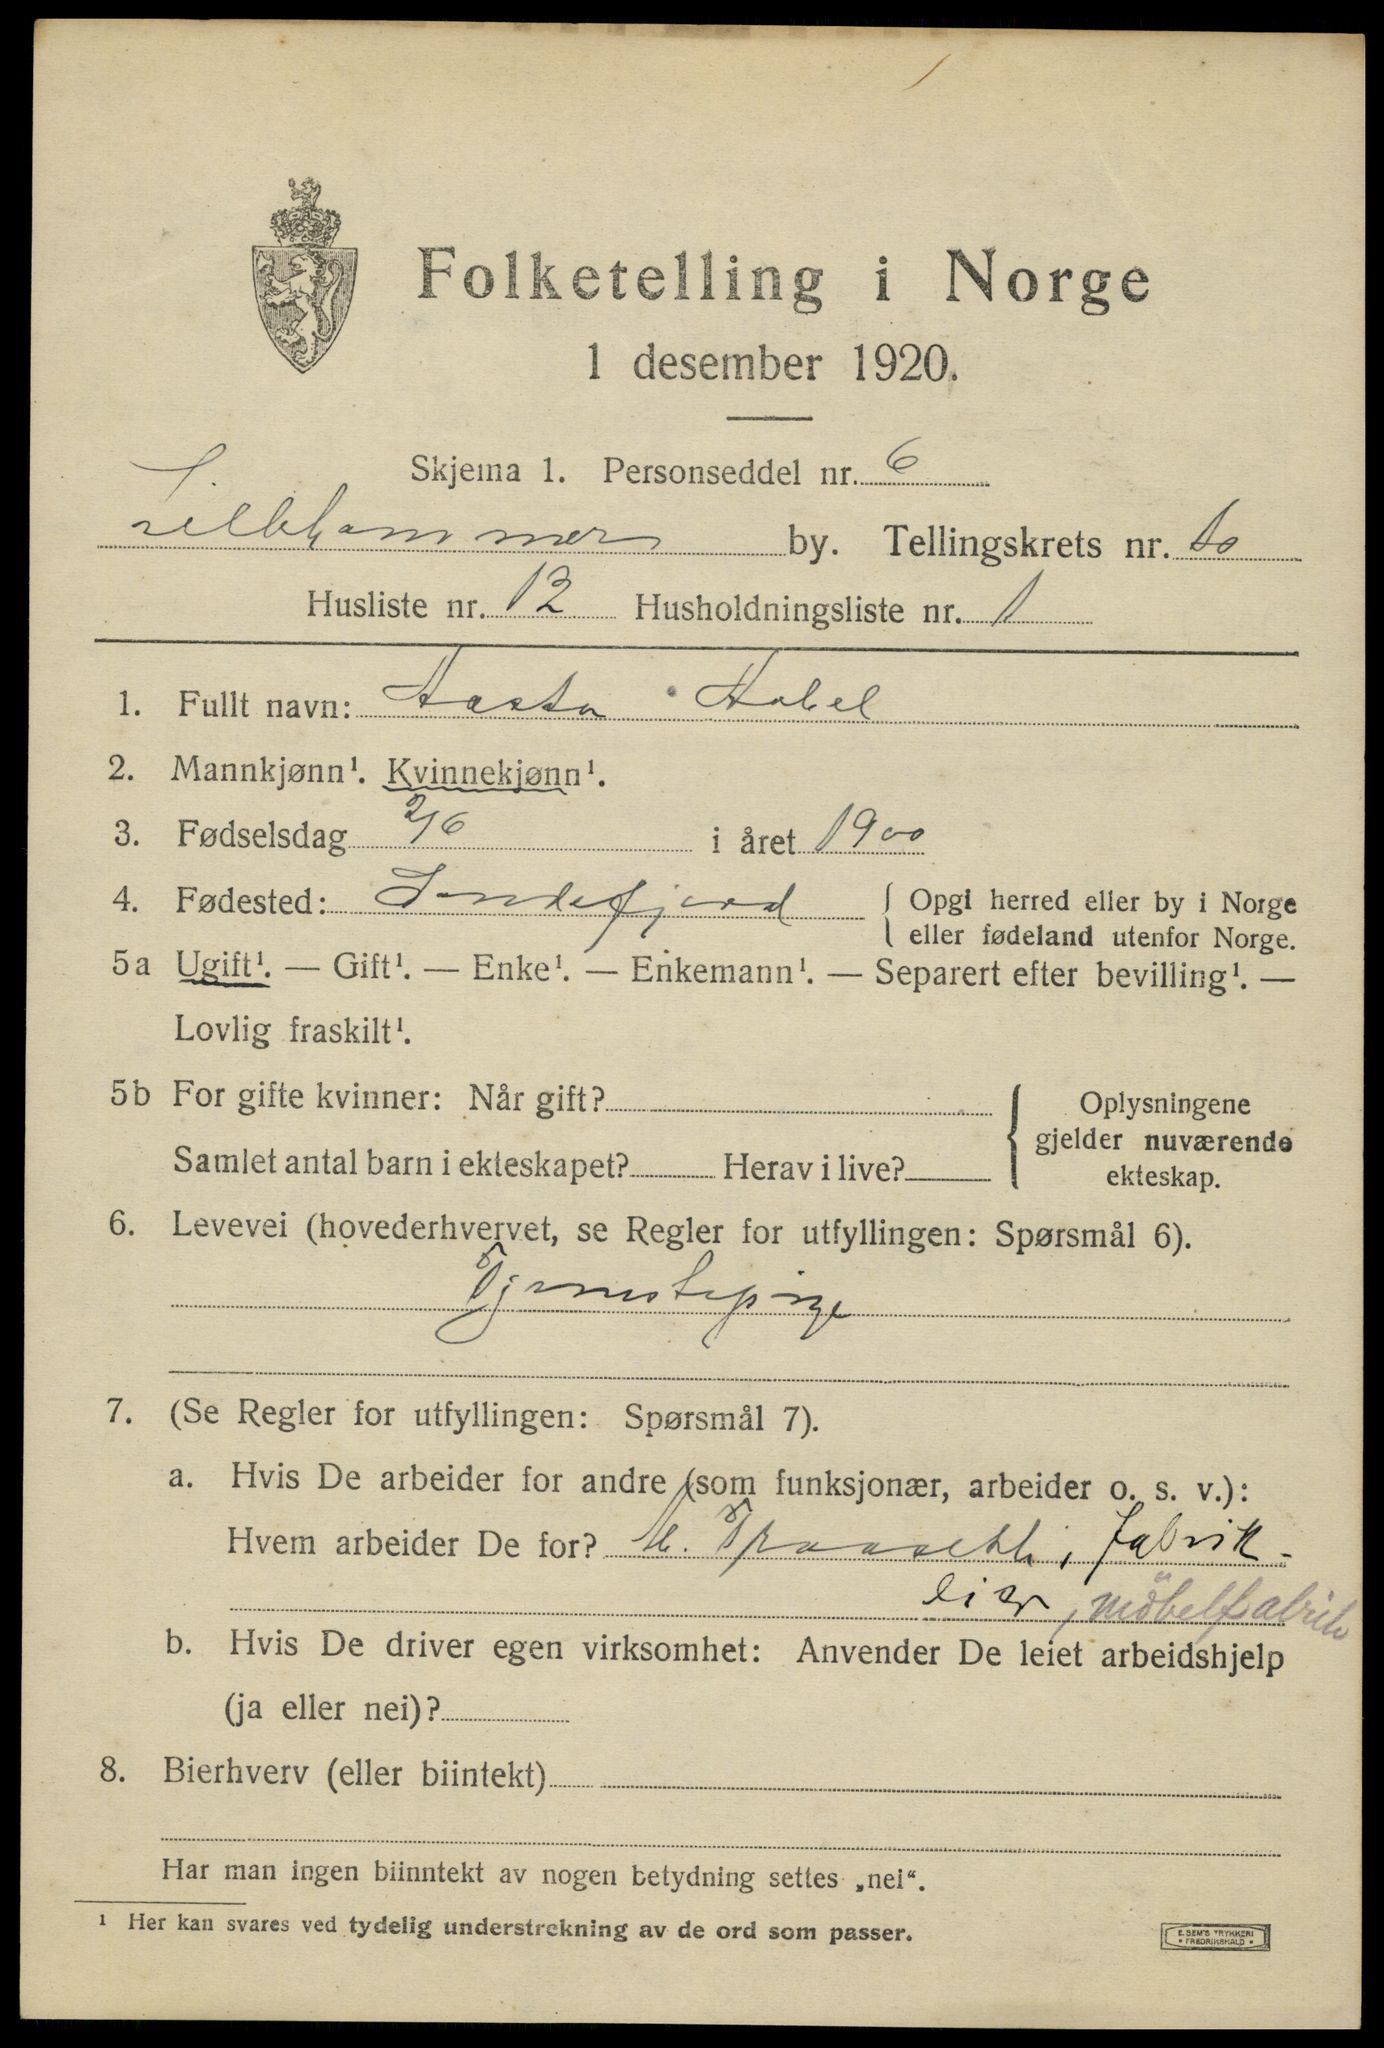 Folketelling i Norge
1 desember 1920.
Skjema 1. Personseddel nr. 6
Lillehammer by. Tellingskrets nr. 10
Husliste nr. 12 Husholdningsliste nr. 1
1. Fullt navn: Aasta Aabel
2. Mannkjønn¹. Kvinnekjønn¹.
3. Fødselsdag 2/6 i året 1900
4. Fødested: Sandefjord { Opgi herred eller by i Norge
eller fødeland utenfor Norge.
5a Ugift¹. — Gift¹. — Enke¹. — Enkemann¹. — Separert efter bevilling¹. —
Lovlig fraskilt¹.
5b For gifte kvinner: Når gift? { Oplysningene
gjelder nuværende
ekteskap.
Samlet antal barn i ekteskapet? Herav i live?
6. Levevei (hovederhvervet, se Regler for utfyllingen: Spørsmål 6).
Tjenestepige
7. (Se Regler for utfyllingen: Spørsmål 7).
a. Hvis De arbeider for andre (som funksjonær, arbeider o. s. v.):
Hvem arbeider De for? Fabrik-
eier, møbelfabrik
b. Hvis De driver egen virksomhet: Anvender De leiet arbeidshjelp
(ja eller nei)?
8. Bierhverv (eller biintekt)
Har man ingen biinntekt av nogen betydning settes „nei“.
¹ Her kan svares ved tydelig understrekning av de ord som passer.
E. SEM'S TRYKKERI
• FREDRIKSHALD •